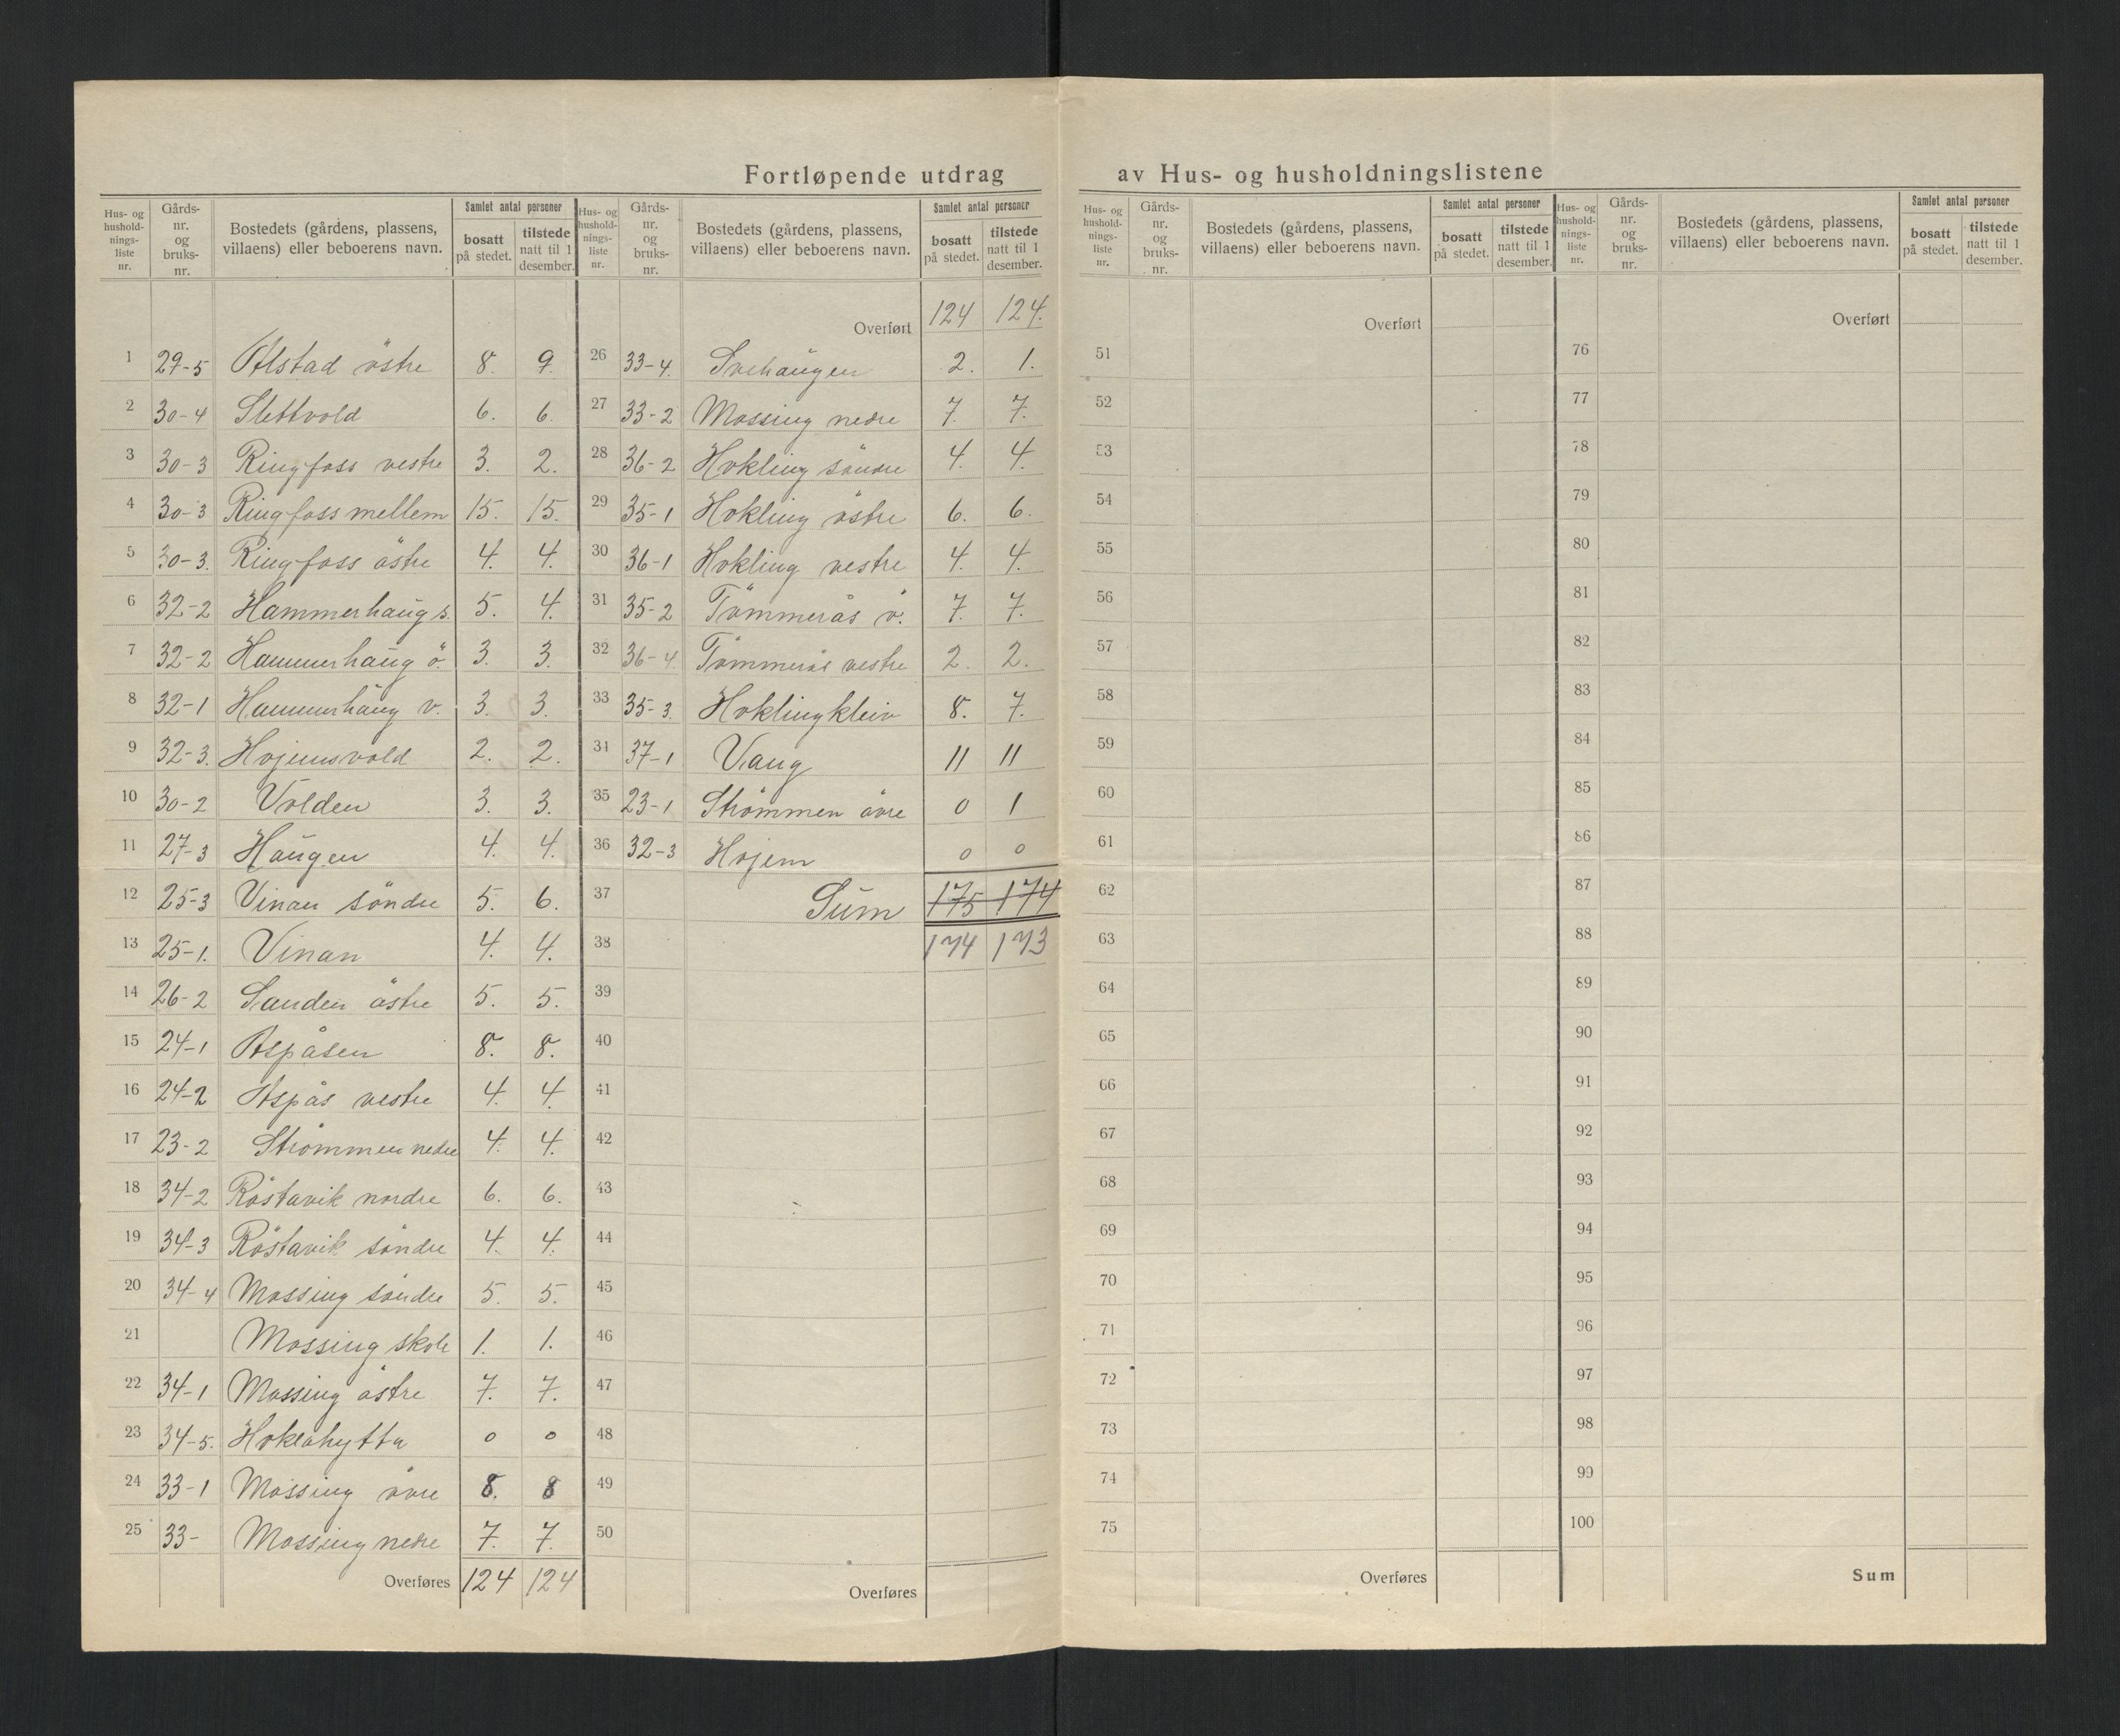 Fortløpende utdrag av Hus- og husholdningslistene
Hus- og hushold-nings-liste nr. Gårds-nr. og bruks-nr. Bostedets (gårdens, plassens, villaens) eller beboerens navn. Samlet antal personer bosatt på stedet. tilstede natt til 1 desember.
1 29-5 Alstad östre 8. 9.
2 30-4 Slettvold 6. 6.
3 30-3 Ringfoss vestre 3. 2.
4 30-3 Ringfoss mellem 15. 15.
5 30-3. Ringfoss östre 4. 4.
6 32-2 Hammerhaug s. 5. 4.
7 32-2 Hammerhaug ö. 3. 3.
8 32-1 Hammerhaug v. 3. 3.
9 32-3. Hojemsvold 2. 2.
10 30-2 Volden 3. 3.
11 27-3 Haugen 4. 4.
12 25-3 Vinan söndre 5. 6.
13 25-1. Vinan 4. 4.
14 26-2 Sanden östre 5. 5.
15 24-1 Aspåsen 8. 8.
16 24-2 Aspås vestre 4. 4.
17 23-2 Strömmen nedre 4. 4.
18 34-2 Röstavik nordre 6. 6.
19 34-3 Röstavik söndre 4. 4.
20 34-4 Mossing söndre 5. 5.
21 Mossing skole 1. 1.
22 34-1 Mossing östre 7. 7.
23 34-5. Hoklahytta 0 0
24 33-1 Mossing övre 8. 8
25 33- Mossing nedre 7. 7.
Overføres 124 124
Hus- og hushold-nings-liste nr. Gårds-nr. og bruks-nr. Bostedets (gårdens, plassens, villaens) eller beboerens navn. Samlet antal personer bosatt på stedet. tilstede natt til 1 desember.
Overført 124 124.
26 33-4. Svehaugen 2. 1.
27 33-2 Mossing nedre 7. 7.
28 36-2 Hokling söndre 4. 4.
29 35-1 Hokling östre 6. 6.
30 36-1 Hokling vestre 4. 4.
31 35-2 Tömmerås ö. 7. 7.
32 36-4. Tömmerås vestre 2. 2.
33 35-3. Hoklingkleiv 8. 7.
34 37-1 Vang 11 11
35 23-1 Strömmen övre 0 1
36 32-3 Hojem 0 0
37 Sum 175 174
38 174 173
39
40
41
42
43
44
45
46
47
48
49
50
Overføres
Hus- og hushold-nings-liste nr. Gårds-nr. og bruks-nr. Bostedets (gårdens, plassens, villaens) eller beboerens navn. Samlet antal personer bosatt på stedet. tilstede natt til 1 desember.
Overført
51
52
53
54
55
56
57
58
59
60
61
62
63
64
65
66
67
68
69
70
71
72
73
74
75
Overføres
Hus- og hushold-nings-liste nr. Gårds-nr. og bruks-nr. Bostedets (gårdens, plassens, villaens) eller beboerens navn. Samlet antal personer bosatt på stedet. tilstede natt til 1 desember.
Overført
76
77
78
79
80
81
82
83
84
85
86
87
88
89
90
91
92
93
94
95
96
97
98
99
100
Sum